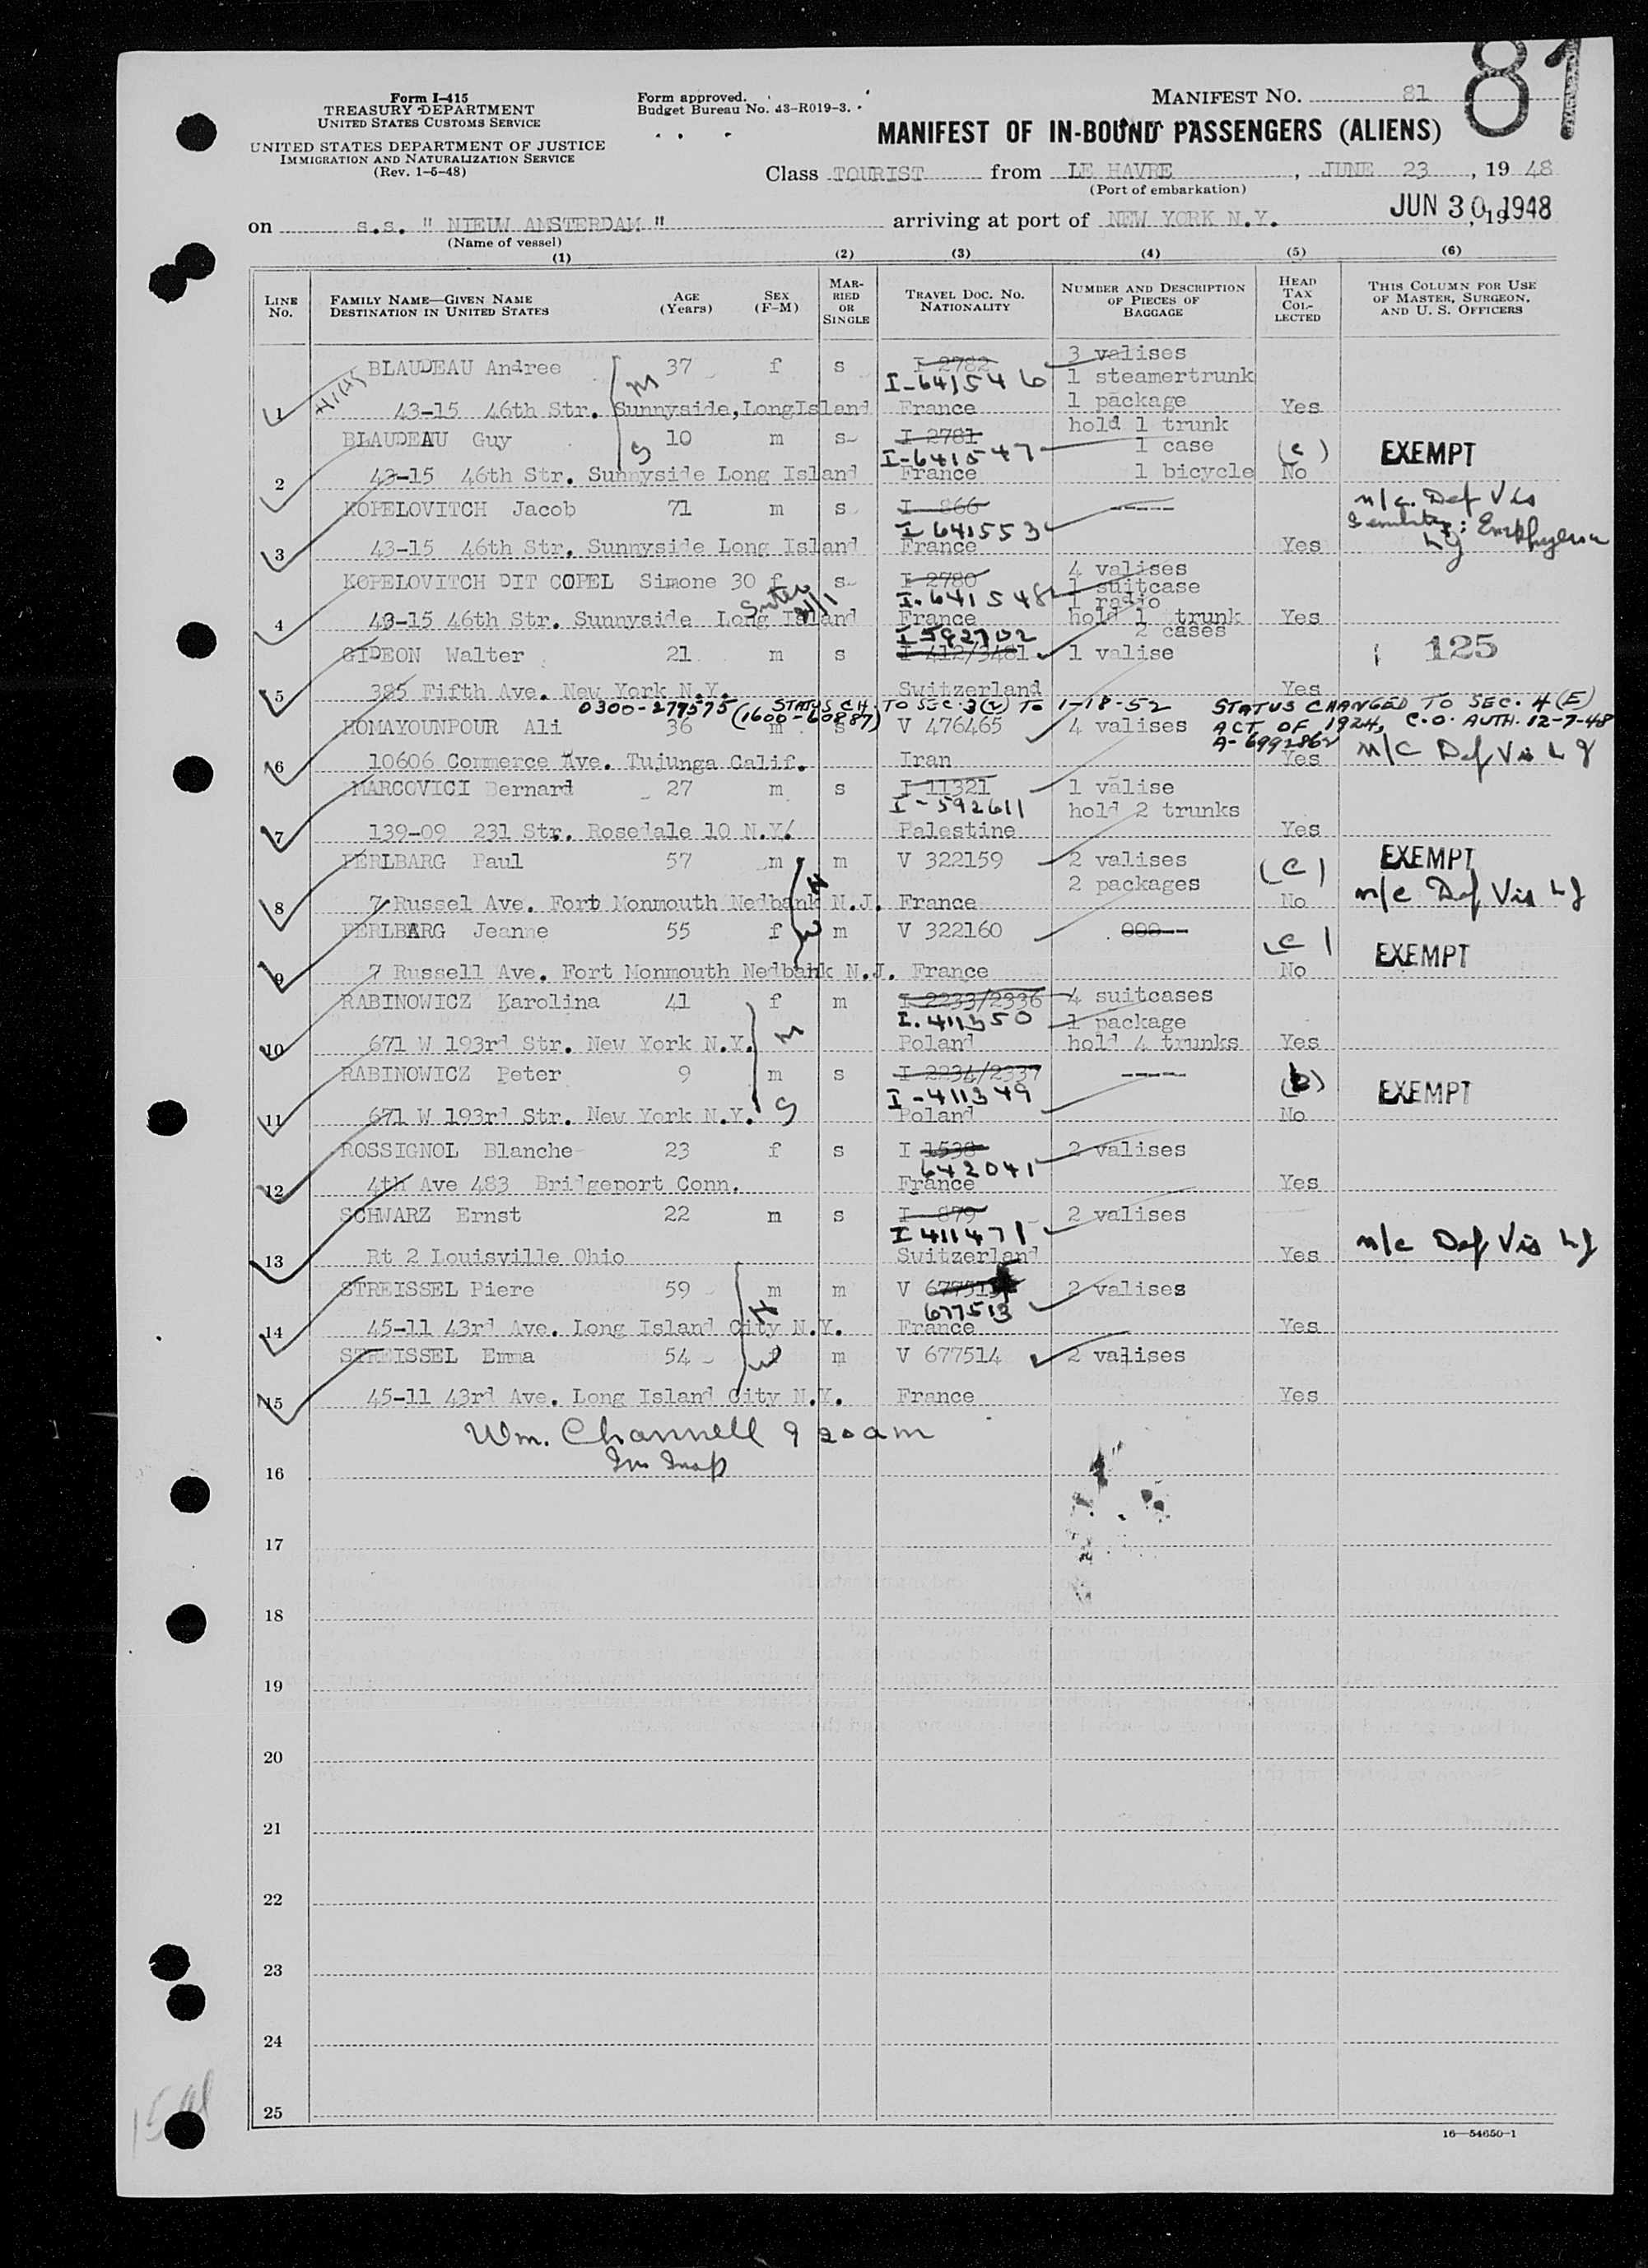 81
Form I-415
TREASURY DEPARTMENT
UNITED STATES CUSTOMS SERVICE
UNITED STATES DEPARTMENT OF JUSTICE
IMMIGRATION AND NATURALIZATION SERVICE
(Rev. 1-5-48)
Form approved.
Budget Bureau No. 43-R019-3.
MANIFEST NO. 81
MANIFEST OF IN-BOUND PASSENGERS (ALIENS)
Class TOURIST from LE HAVRE, JUNE 23, 1948
(Port of embarkation)
on s.s. " NIEUW AMSTERDAM " arriving at port of NEW YORK N.Y. JUN 30 1948, 19
(Name of vessel)
(1) (2) (3) (4) (5) (6)
LINE No. FAMILY NAME—GIVEN NAME DESTINATION IN UNITED STATES AGE (Years) SEX (F-M) MARRIED OR SINGLE TRAVEL DOC. NO. NATIONALITY NUMBER AND DESCRIPTION OF PIECES OF BAGGAGE HEAD TAX COLLECTED THIS COLUMN FOR USE OF MASTER, SURGEON, AND U. S. OFFICERS
BLAUDEAU Andree 37 f s I 2782 3 valises
M I-641546 1 steamertrunk
1 43-15 46th Str. Sunnyside, LongIsland France 1 package Yes
hold 1 trunk
BLAUDEAU Guy 10 m s I 2781 1 case (c) EXEMPT
S I-641547
2 43-15 46th Str. Sunnyside Long Island France 1 bicycle No
KOPELOVITCH Jacob 71 m s I 866 ----- n/c. Def Vis
I 641553 Senility: Emphysema
3 43-15 46th Str. Sunnyside Long Island France Yes
KOPELOVITCH DIT COPEL Simone 30 f s I 2780 4 valises
Sister I-641548 1 suitcase
1 radio
4 43-15 46th Str. Sunnyside Long Island France hold 1 trunk Yes
I 592702 2 cases
GIDEON Walter 21 m s I 412/3481 1 valise 125
5 385 Fifth Ave. New York N.Y. Switzerland Yes
0300-277575 (1600-60887) STATUS CH. TO SEC. 3(2) TO 1-18-52 STATUS CHANGED TO SEC. 4(E)
ACT OF 1924, C.O. AUTH. 12-7-48
A-6992862
HOMAYOUNPOUR Ali 36 m s V 476465 4 valises
6 10606 Commerce Ave. Tujunga Calif. Iran Yes n/c Def Vis
MARCOVICI Bernard 27 m s I 11321 1 valise
I-592611 hold 2 trunks
7 139-09 231 Str. Rosedale 10 N.Y. Palestine Yes
PERLBARG Paul 57 m m V 322159 2 valises (c) EXEMPT
H 2 packages n/c Def Vis
8 7 Russel Ave. Fort Monmouth Nedbank N.J. France No
PERLBARG Jeanne 55 f m V 322160 (c) EXEMPT
W
9 7 Russell Ave. Fort Monmouth Nedbank N.J. France No
RABINOWICZ Karolina 41 f m I 2233/2336 4 suitcases
M I-411350 1 package
10 671 W 193rd Str. New York N.Y. Poland hold 4 trunks Yes
RABINOWICZ Peter 9 m s I 2234/2337 ----- (b) EXEMPT
S I-411349
11 671 W 193rd Str. New York N.Y. Poland No
ROSSIGNOL Blanche 23 f s I 1538 2 valises
642041
12 4th Ave 483 Bridgeport Conn. France Yes
SCHWARZ Ernst 22 m s I 879 2 valises
I 411471 n/c Def Vis
13 Rt 2 Louisville Ohio Switzerland Yes
STREISSEL Piere 59 m m V 2 valises
H 677513
14 45-11 43rd Ave. Long Island City N.Y. France Yes
STREISSEL Emma 54 f m V 677514 2 valises
W
15 45-11 43rd Ave. Long Island City N.Y. France Yes
Wm. Channell 9 20 am
Im Insp
16
17
18
19
20
21
22
23
24
25
16—54650-1